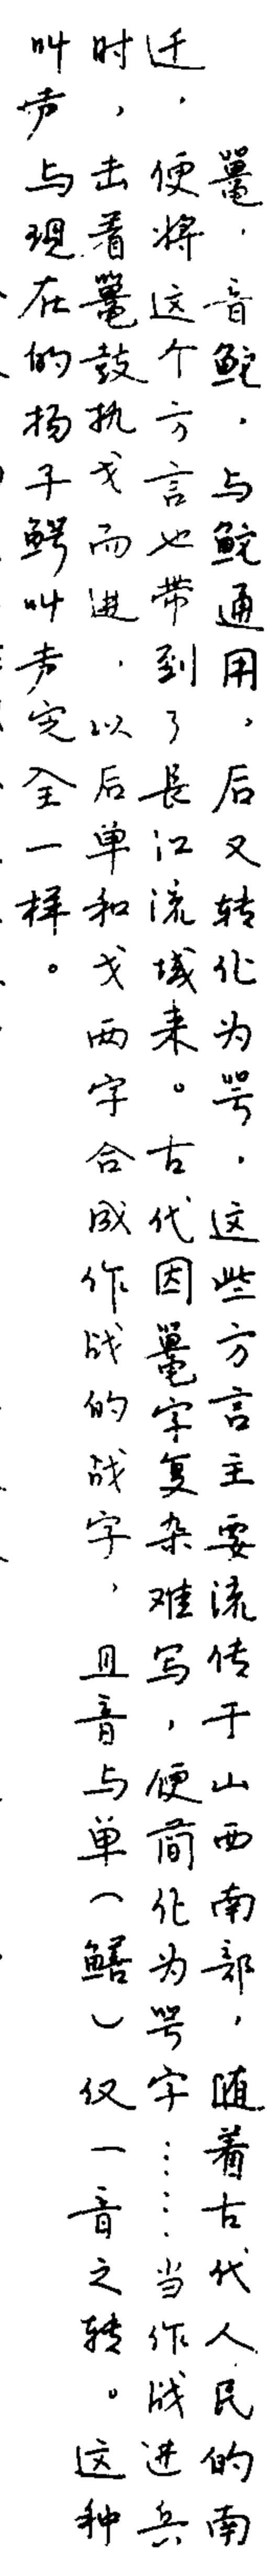 鼍，音鮀，与鮀通用，后又转化为咢，这些方言主要流传于山西南部，随着古代人民的南
迁，便将这个方言也带到了長江流域来。古代因鼍字复杂难写，便简化为咢字……当作战进兵
时，击着鼍鼓执戈而进，以后单和戈两字合成作战的战字，且音与单（鳝）仅一音之转。这种
叫声与現在的扬子鳄叫声完全一样。